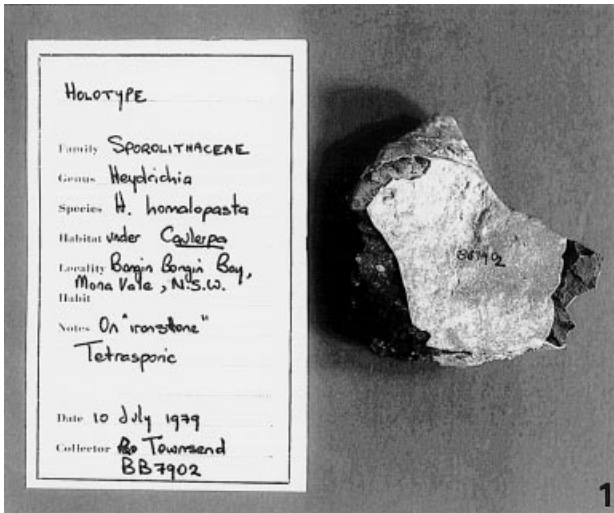 HOLOTYPE
Family SPOROLITHACEAE
Genus Heydrichia
Species H. homalopasta
Habitat under Caulerpa
Locality Bongin Bongin Bay,
Mona Vale, N.S.W.
Habit
Notes On "ironstone"
Tetrasporic
Date 10 July 1979
Collector Townsend
BB7902
BB7902
1